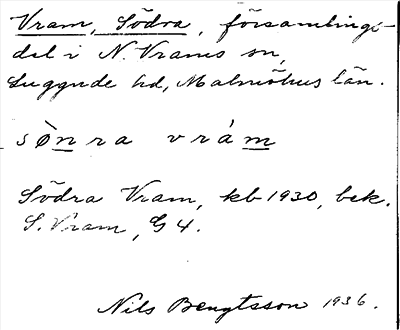 Vram, Södra, församlings-
del i N. Vrams sn,
Luggude hd, Malmöhus län.
sø̀nra vrám
Södra Vram, kb 1930, bek.
S. Vram, G 4.
Nils Bengtsson 1936.